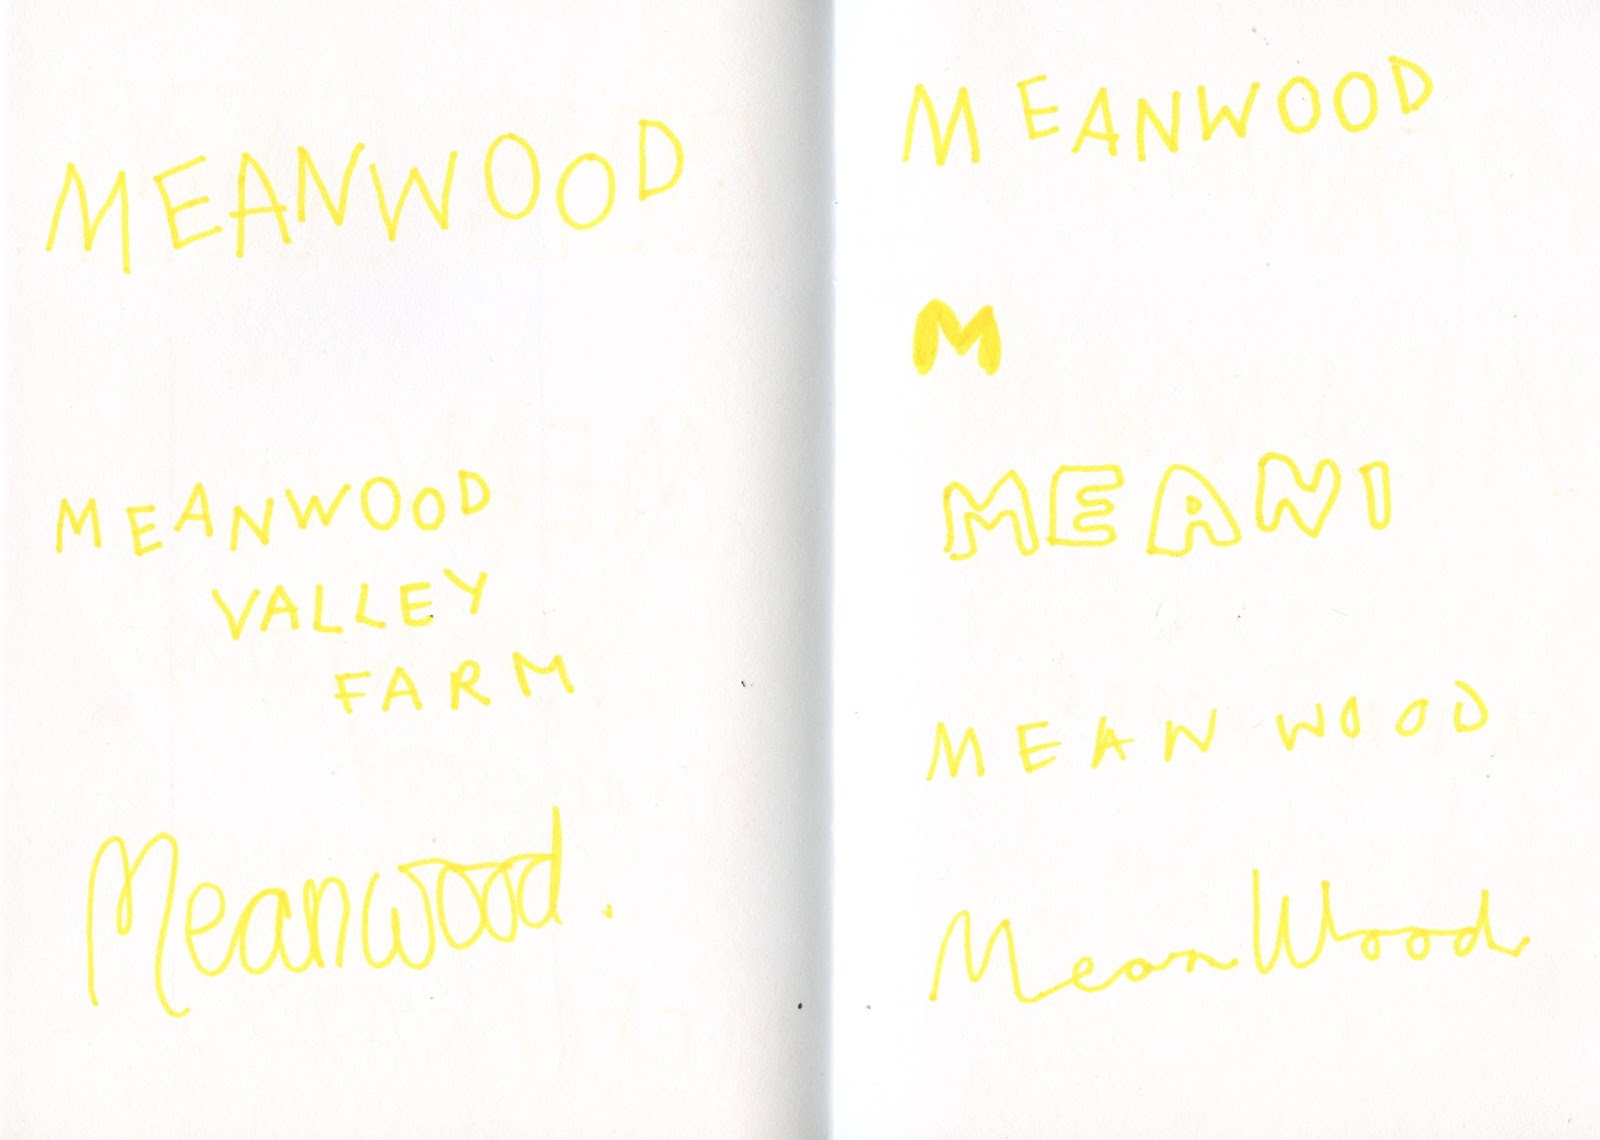 MEANWOOD
MEANWOOD
VALLEY
FARM
Meanwood.
MEANWOOD
M
MEANI
MEAN WOOD
Mean Wood